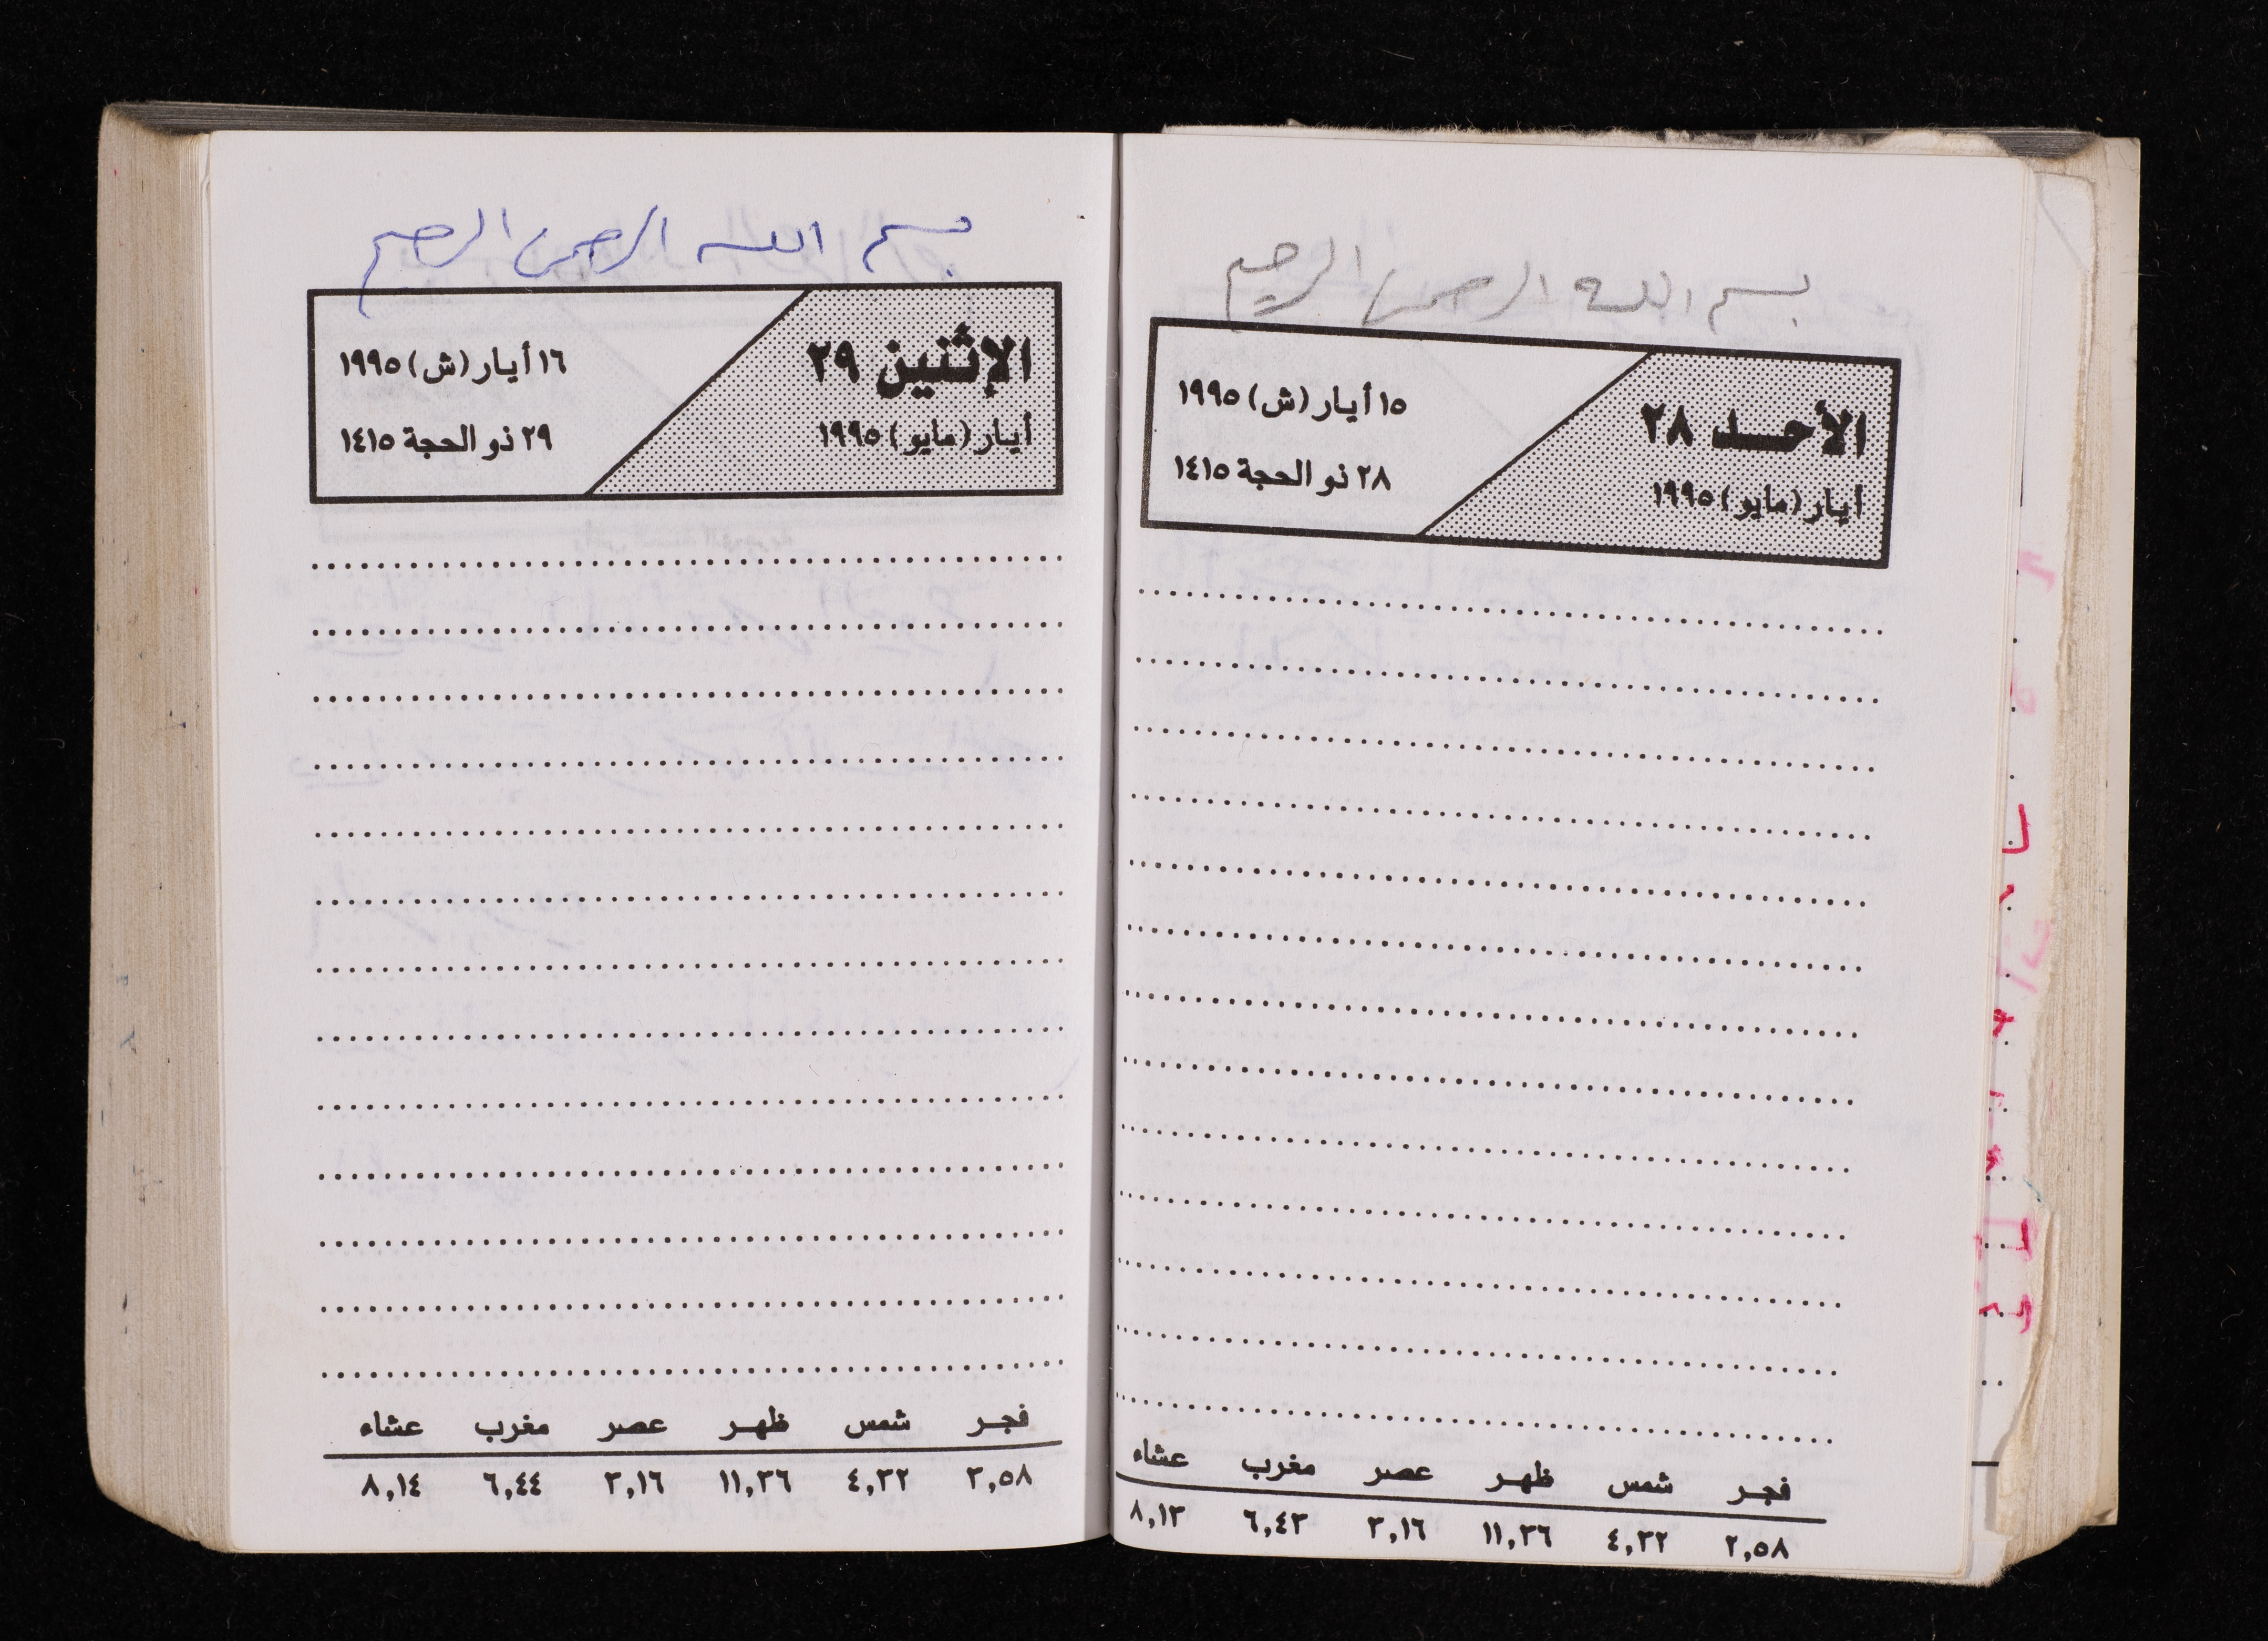 بسم الله الرحمن الرحيم
الأحد ٢٨
أيار (مايو) ١٩٩٥
١٥ أيار (ش) ١٩٩٥
٢٨ ذو الحجة ١٤١٥
فجر شمس ظهر عصر مغرب عشاء
٢,٥٨ ٤,٣٢ ١١,٣٦ ٣,١٦ ٦,٤٣ ٨,١٣
بسم الله الرحمن الرحيم
الإثنين ٢٩
أيار (مايو) ١٩٩٥
١٦ أيار (ش) ١٩٩٥
٢٩ ذو الحجة ١٤١٥
فجر شمس ظهر عصر مغرب عشاء
٢,٥٨ ٤,٣٢ ١١,٣٦ ٣,١٦ ٦,٤٤ ٨,١٤